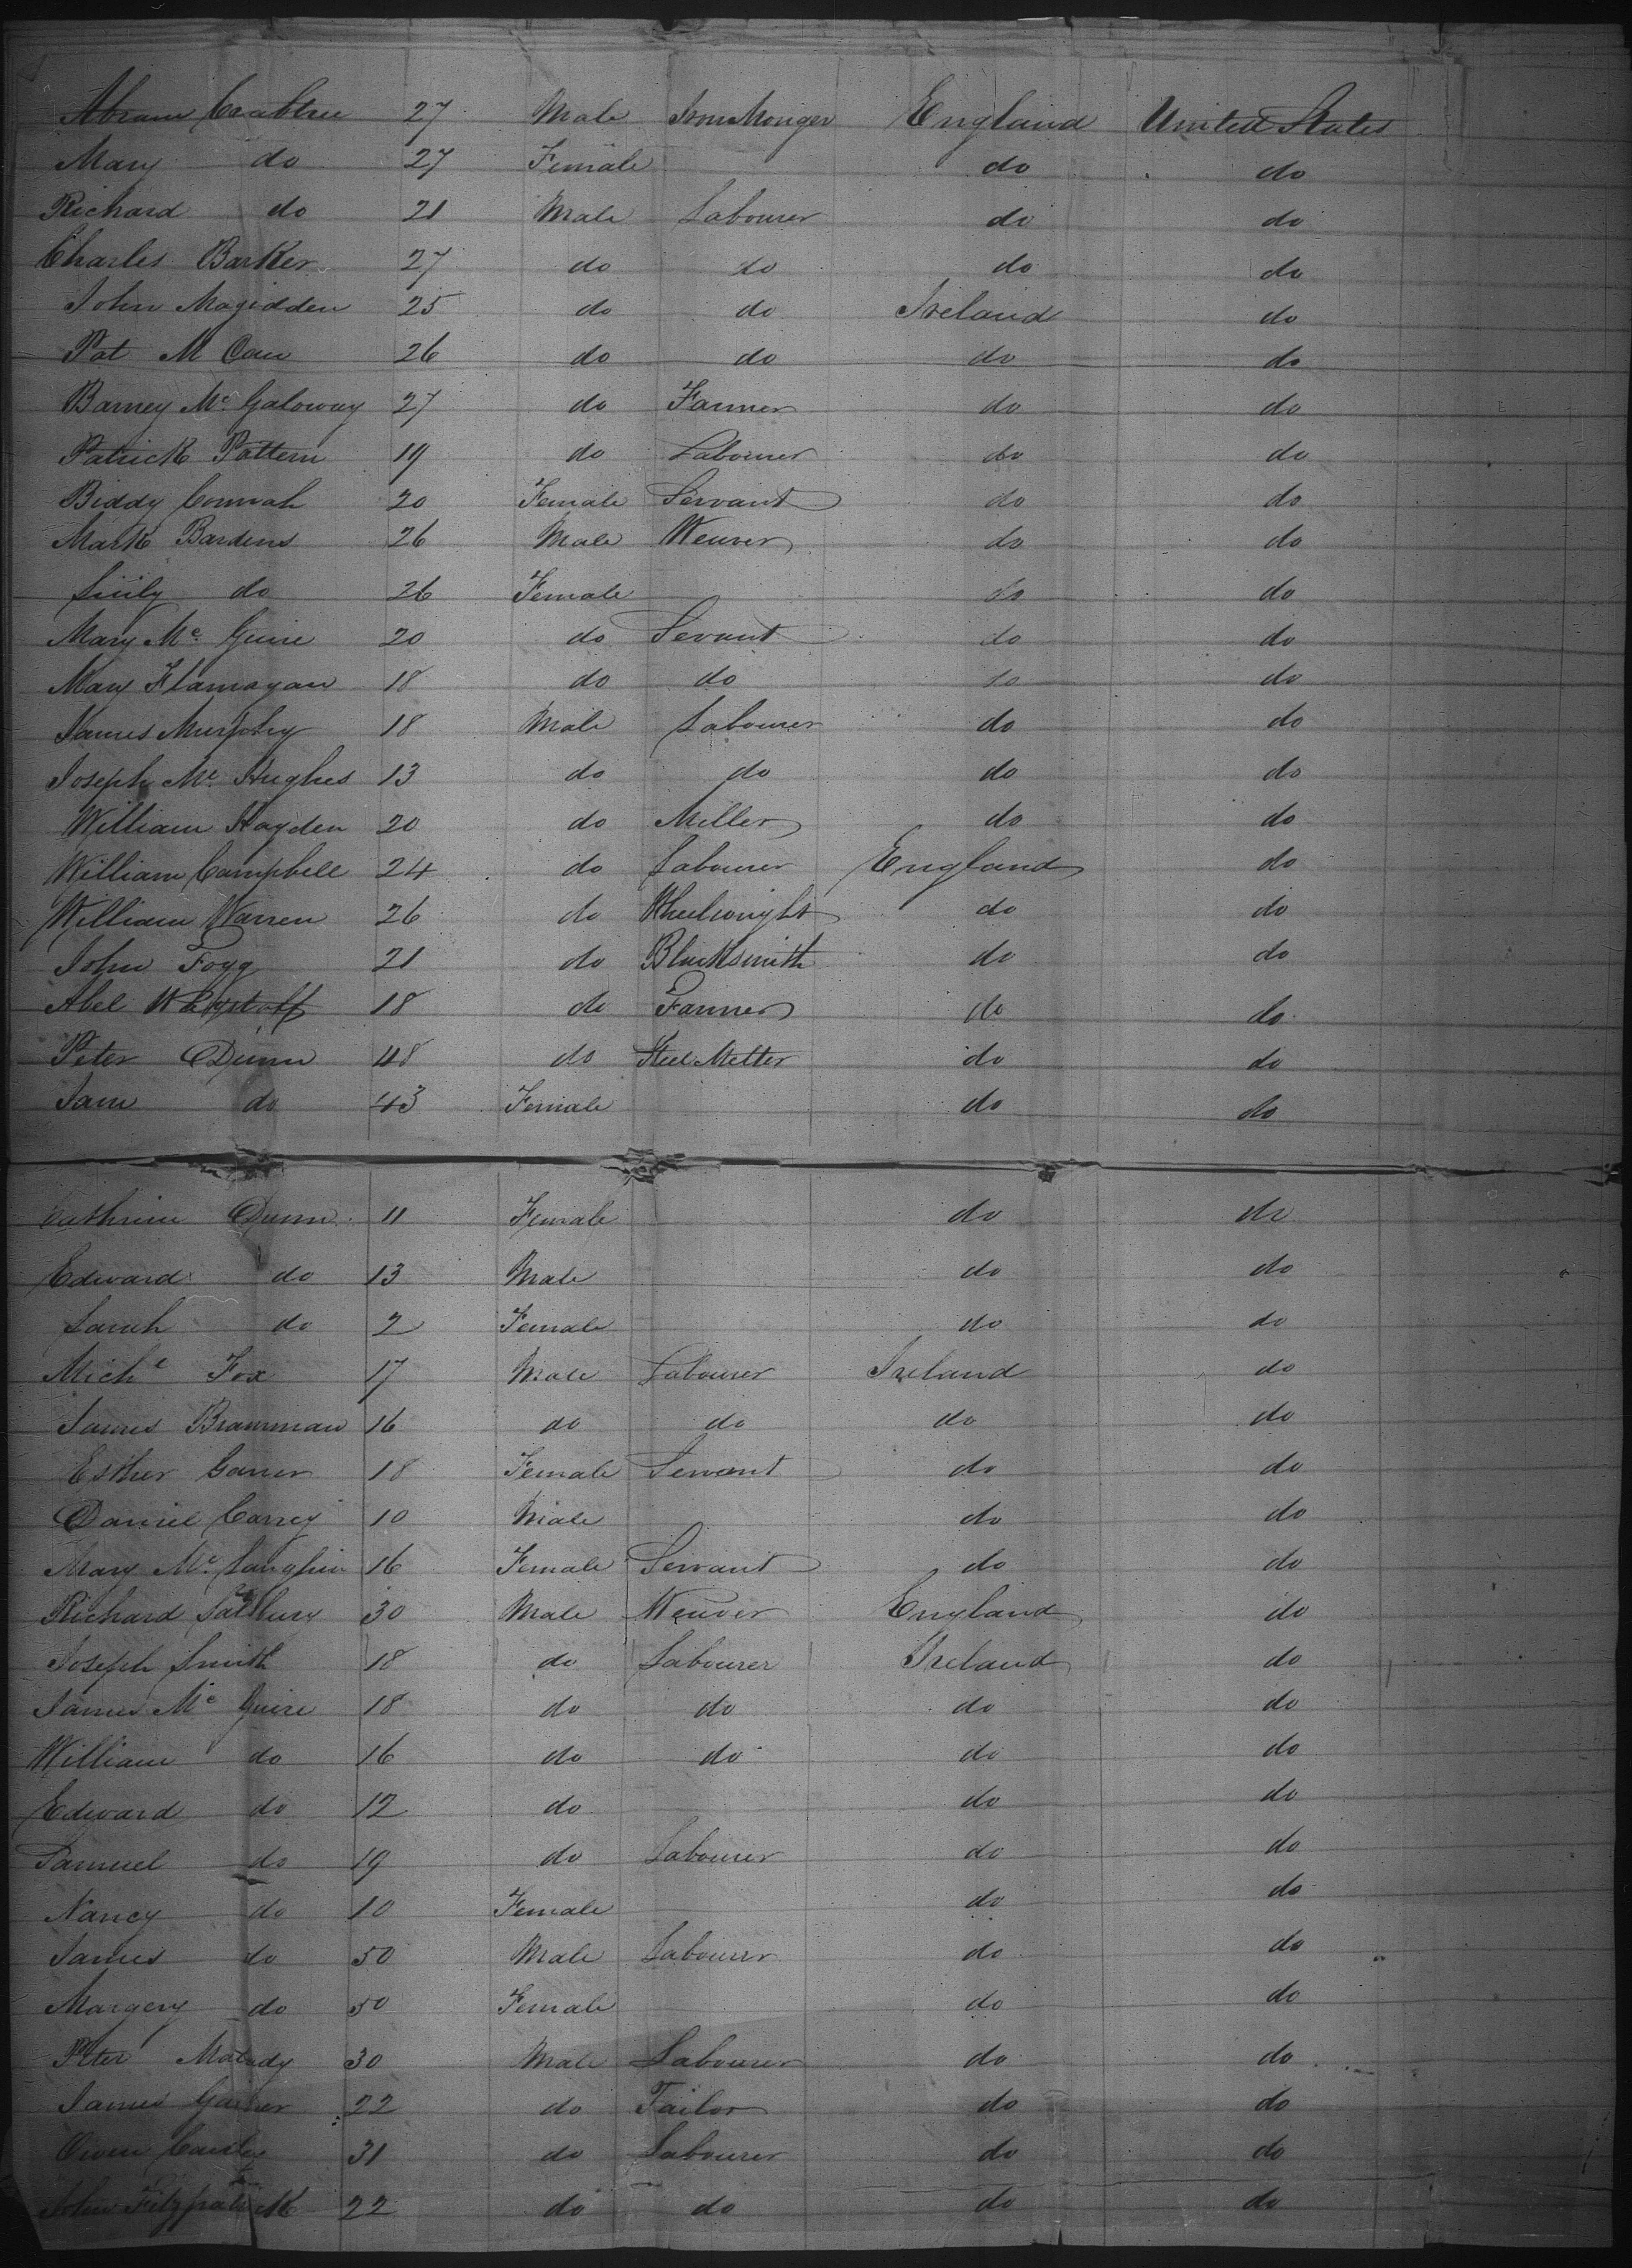 Abram Crabtree 27 Male Iron Monger England United States
Mary do 27 Female do do
Richard do 21 Male Labourer do do
Charles Barker 27 do do do do
John Magidden 25 do do Ireland do
Pat M Cann 26 do do do do
Barney Mc Galoway 27 do Farmer do do
Patrick Pattern 19 do Labourer do do
Biddy 20 Female Servant do do
Mark Bardens 26 Male Weaver do do
do 26 Female do do
Mary Mc Guire 20 do Servant do do
Mary Flanagan 18 do do do do
James Murphy 18 Male Labourer do do
Joseph Mc Hughes 13 do do do do
William Hayden 20 do Miller do do
William Campbell 24 do Labourer England do
William Warren 26 do Wheelwright do do
John Fogg 21 do Blacksmith do do
Abel Wagstaff 18 do Farmer do do
Peter Dunn 48 do Steel Melter do do
Jane do 43 Female do do
Cathrine Dunn 11 Female do do
Edward do 13 Male do do
Sarah do 2 Female do do
Michl Fox 17 Male Labourer Ireland do
James Brannan 16 do do do do
Esther 18 Female Servant do do
Daniel Carrey 10 Male do do
Mary Mc Laughin 16 Female Servant do do
Richard Salsbury 30 Male Weaver England do
Joseph Smith 18 do Labourer Ireland do
James Mc Guire 18 do do do do
William do 16 do do do do
Edward do 12 do do do
Samuel do 19 do Labourer do do
Nancy do 10 Female do do
James do 50 Male Labourer do do
Margery do 50 Female do do
Peter Malady 30 Male Labourer do do
James 22 do Tailor do do
Owen 31 do Labourer do do
John Fitzpatrick 22 do do do do